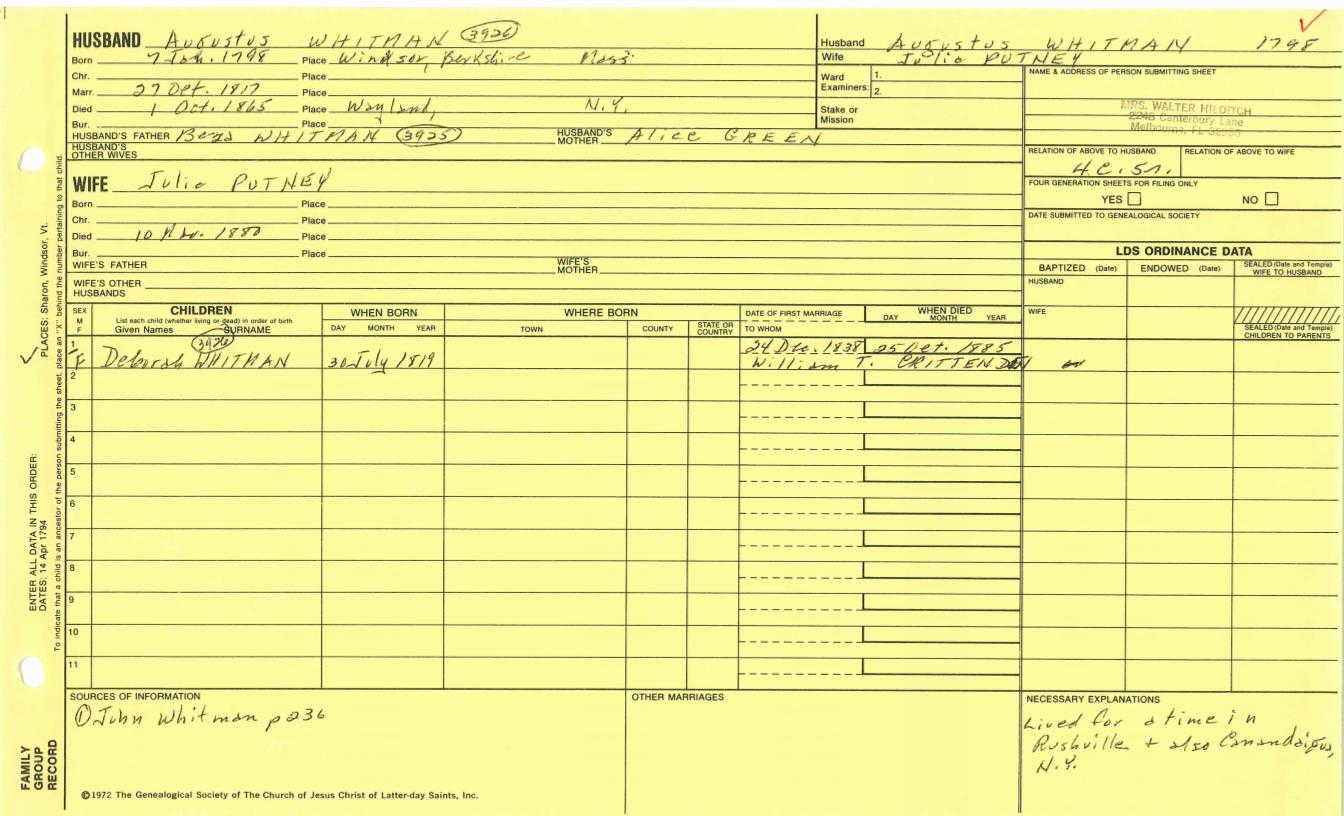 HUSBAND Augustus WHITMAN 3926
Born 7 Jan. 1798 Place Windsor, Berkshire Mass.
Chr. Place
Marr. 27 Oct. 1817 Place
Died 1 Oct. 1865 Place Wayland, N.Y.
Bur. Place
HUSBAND'S FATHER WHITMAN 3925 HUSBAND'S MOTHER Alice GREEN
HUSBAND'S OTHER WIVES
WIFE Julia PUTNEY
Born Place
Chr. Place
Died 10 1880 Place
Bur. Place
WIFE'S FATHER WIFE'S MOTHER
WIFE'S OTHER HUSBANDS
Husband Augustus WHITMAN 1798
Wife Julia PUTNEY
Ward Examiners: 1.
2.
Stake or Mission
NAME & ADDRESS OF PERSON SUBMITTING SHEET
MRS. WALTER HILDITCH
2248 Canterbury Lane
Melbourne, FL
RELATION OF ABOVE TO HUSBAND RELATION OF ABOVE TO WIFE
4 c. 5r.
FOUR GENERATION SHEETS FOR FILING ONLY
YES NO
DATE SUBMITTED TO GENEALOGICAL SOCIETY
LDS ORDINANCE DATA
BAPTIZED (Date) ENDOWED (Date) SEALED (Date and Temple) WIFE TO HUSBAND
HUSBAND
WIFE
SEALED (Date and Temple) CHILDREN TO PARENTS
SEX M F
CHILDREN
List each child (whether living or dead) in order of birth
Given Names SURNAME
WHEN BORN
DAY MONTH YEAR
WHERE BORN
TOWN COUNTY STATE OR COUNTRY
DATE OF FIRST MARRIAGE
TO WHOM
WHEN DIED
DAY MONTH YEAR
1 24 Dec. 1838 25 Oct. 1885
F Deborah WHITMAN 30 July 1819 William T. CRITTENDEN
2
3
4
5
6
7
8
9
10
11
SOURCES OF INFORMATION
① John Whitman p 236
OTHER MARRIAGES
NECESSARY EXPLANATIONS
Lived for a time in
Rushville + also Canandaigua,
N.Y.
©1972 The Genealogical Society of The Church of Jesus Christ of Latter-day Saints, Inc.
FAMILY GROUP RECORD
ENTER ALL DATA IN THIS ORDER:
DATES: 14 Apr 1794 PLACES: Sharon, Windsor, Vt.
To indicate that a child is an ancestor of the person submitting the sheet, place an "X" behind the number pertaining to that child.